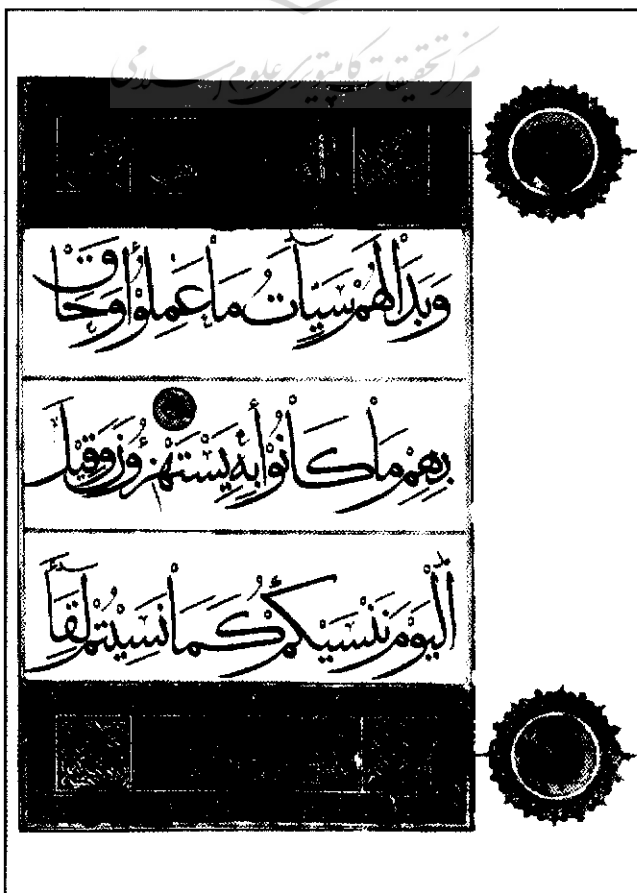 مرکز تحقیقات کامپیوتری علوم اسلامی
وَبَدَا لَهُمْ سَيِّآتُ مَا عَمِلُوا وَحَاقَ
بِهِمْ مَا كَانُوا بِهِ يَسْتَهْزِؤُنَ وَقِيلَ
الْيَوْمَ نَنْسٰيكُمْ كَمَا نَسِيتُمْ لِقَآءَ